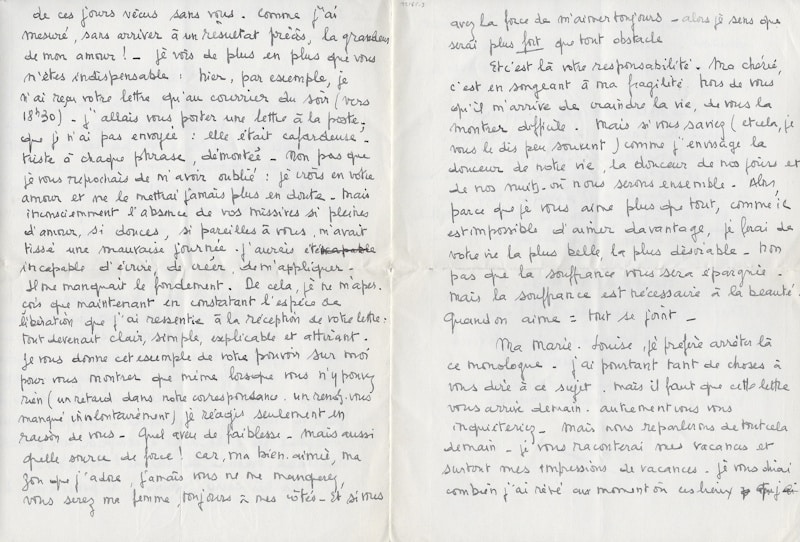 de ces jours vécus sans vous. Comme j'ai
mesuré, sans arriver à un résultat précis, la grandeur
de mon amour ! - je vois de plus en plus que vous
m'êtes indispensable : hier, par exemple, je
n'ai reçu votre lettre qu'au courrier du soir (vers
18h30) - j'allais vous porter une lettre à la poste
que je n'ai pas envoyée : elle était cafardeuse,
triste à chaque phrase, démontée - Non pas que
je vous reprochais de m'avoir oublié : je crois en votre
amour et ne le mettrai jamais plus en doute - Mais
inconsciemment l'absence de vos missives si pleines
d'amour, si douces, si pareilles à vous, m'avait
tissé une mauvaise journée. j'aurais été
incapable d'écrire, de créer, de m'appliquer.
Il me manquait le fondement. De cela, je ne m'aper-
çois que maintenant en constatant l'espèce de
libération que j'ai ressentie à la réception de votre lettre :
tout devenait clair, simple, explicable et attirant.
Je vous donne cet exemple de votre pouvoir sur moi
pour vous montrer que même lorsque vous n'y pouvez
rien (un retard dans notre correspondance. un rendez-vous
manqué involontairement) je réagis seulement en
raison de vous - Quel aveu de faiblesse - Mais aussi
quelle source de force ! car, ma bien-aimée, ma
Zon que j'adore, jamais vous ne me manquerez,
vous serez ma femme, toujours à mes côtés - Et si vous
avez la force de m'aimer toujours - alors je sens que
serai plus fort que tout obstacle
Et c'est là votre responsabilité. Ma chérie,
c'est en songeant à ma fragilité hors de vous
qu'il m'arrive de craindre la vie, de vous la
montrer difficile. Mais si vous saviez (et cela, je
vous le dis peu souvent) comme j'envisage la
douceur de notre vie, la douceur de nos jours et
de nos nuits où nous serons ensemble. Alors,
parce que je vous aime plus que tout, comme il
est impossible d'aimer davantage, je ferai de
votre vie la plus belle, la plus désirable - Non
pas que la souffrance vous sera épargnée.
Mais la souffrance est nécessaire à la beauté.
Quand on aime = tout se joint -
Ma Marie-Louise, je préfère arrêter là
ce monologue. j'ai pourtant tant de choses à
vous dire à ce sujet. mais il faut que cette lettre
vous arrive demain. autrement vous vous
inquiéteriez - Mais nous reparlerons de tout cela
demain - je vous raconterai mes vacances et
surtout mes impressions de vacances - je vous dirai
combien j'ai rêvé au moment où ces lieux